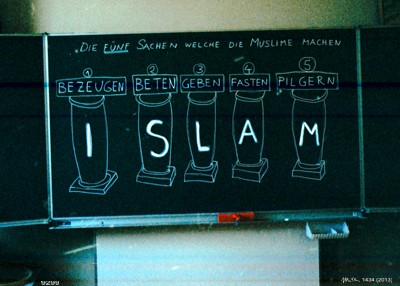 DIE FÜNF SACHEN WELCHE DIE MUSLIME MACHEN
1 2 3 4 5
BEZEUGEN BETEN GEBEN FASTEN PILGERN
I S L A M
9299
1434 (2013)